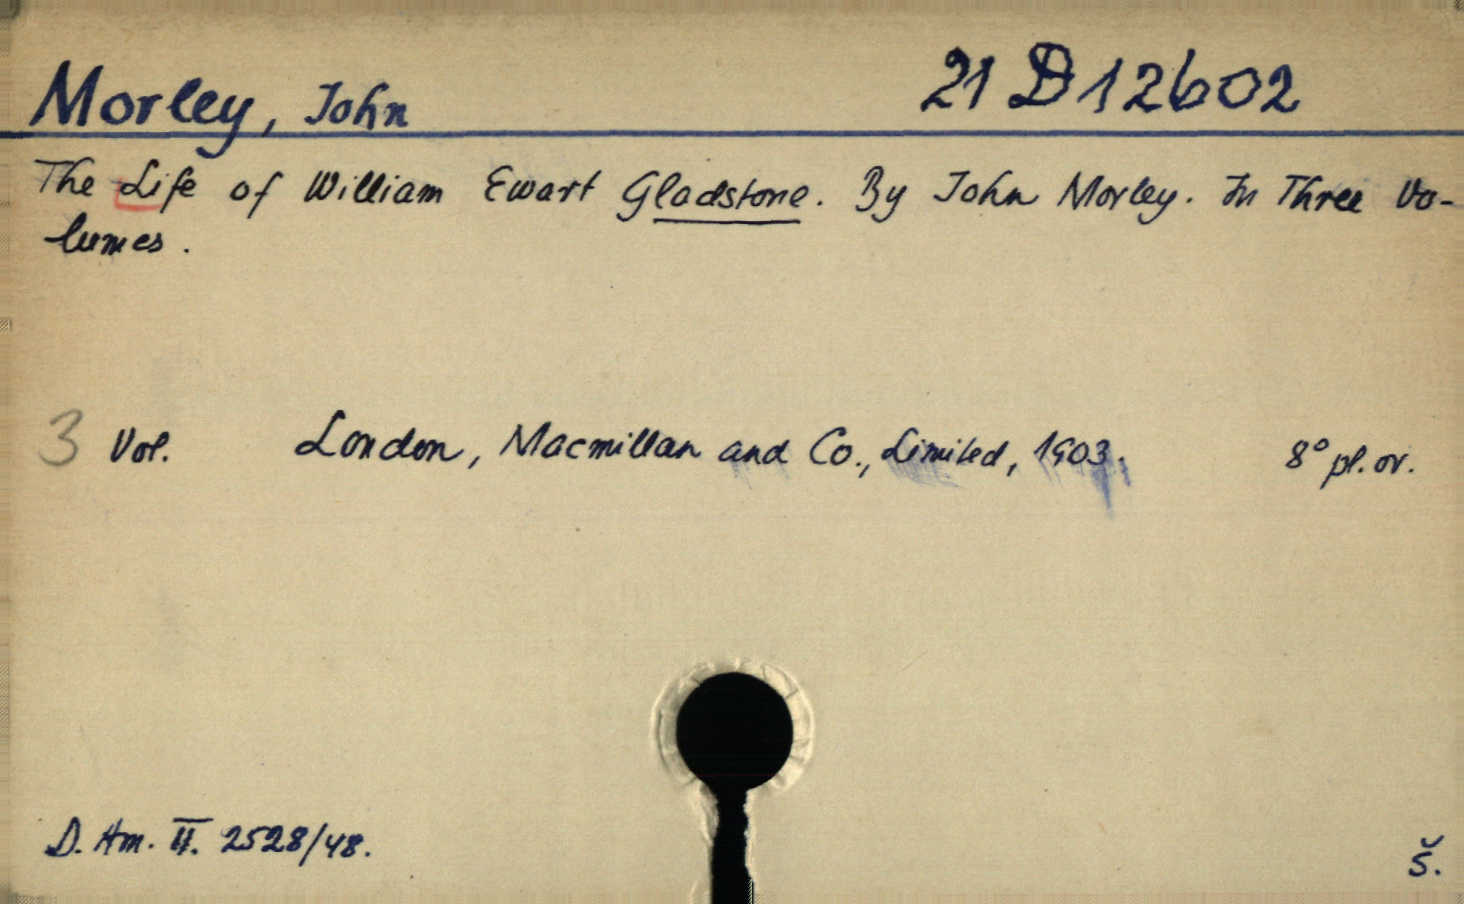 Morley, John 21 D 12602
The Life of William Ewart Gladstone. By John Morley. In Three Vo-
lumes.
3 Vol. London, Macmillan and Co., Limited, 1903. 8° pl. or.
D. Am. II. 2528/48. Š.